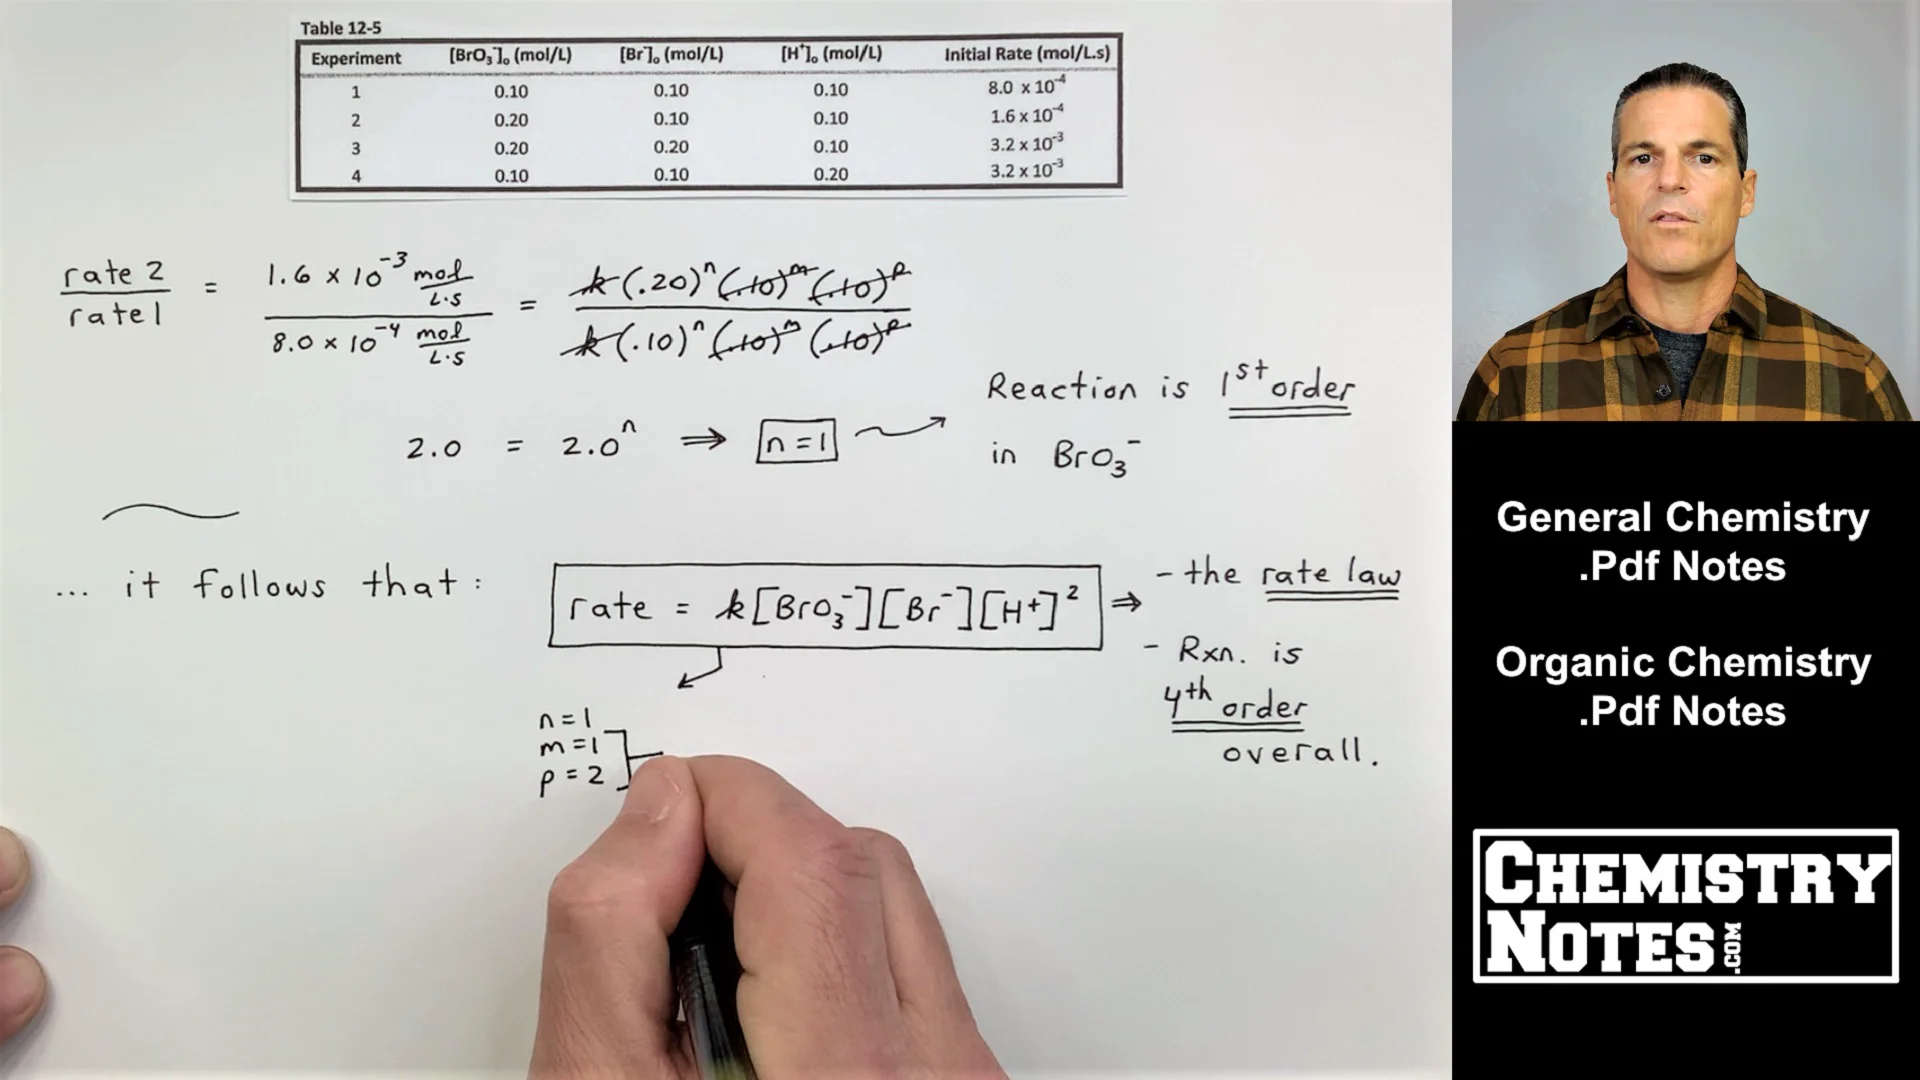 Table 12-5
Experiment [BrO₃⁻]₀ (mol/L) [Br⁻]₀ (mol/L) [H⁺]₀ (mol/L) Initial Rate (mol/L.s)
1 0.10 0.10 0.10 8.0 x 10⁻⁴
2 0.20 0.10 0.10 1.6 x 10⁻⁴
3 0.20 0.20 0.10 3.2 x 10⁻³
4 0.10 0.10 0.20 3.2 x 10⁻³
rate 2 / rate 1 = 1.6 x 10⁻³ mol/L·s / 8.0 x 10⁻⁴ mol/L·s = k(.20)ⁿ(.10)ᵐ(.10)ᵖ / k(.10)ⁿ(.10)ᵐ(.10)ᵖ
2.0 = 2.0ⁿ ⇒ n = 1
Reaction is 1ˢᵗ order
in BrO₃⁻
... it follows that :
rate = k[BrO₃⁻][Br⁻][H⁺]² ⇒
- the rate law
- Rxn. is
4ᵗʰ order
overall.
n = 1
m = 1
p = 2
General Chemistry
.Pdf Notes
Organic Chemistry
.Pdf Notes
CHEMISTRY
NOTES.COM